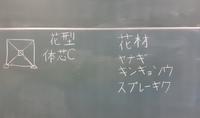 花型
体芯C
花材
ヤナギ
キンギョソウ
スプレーギク